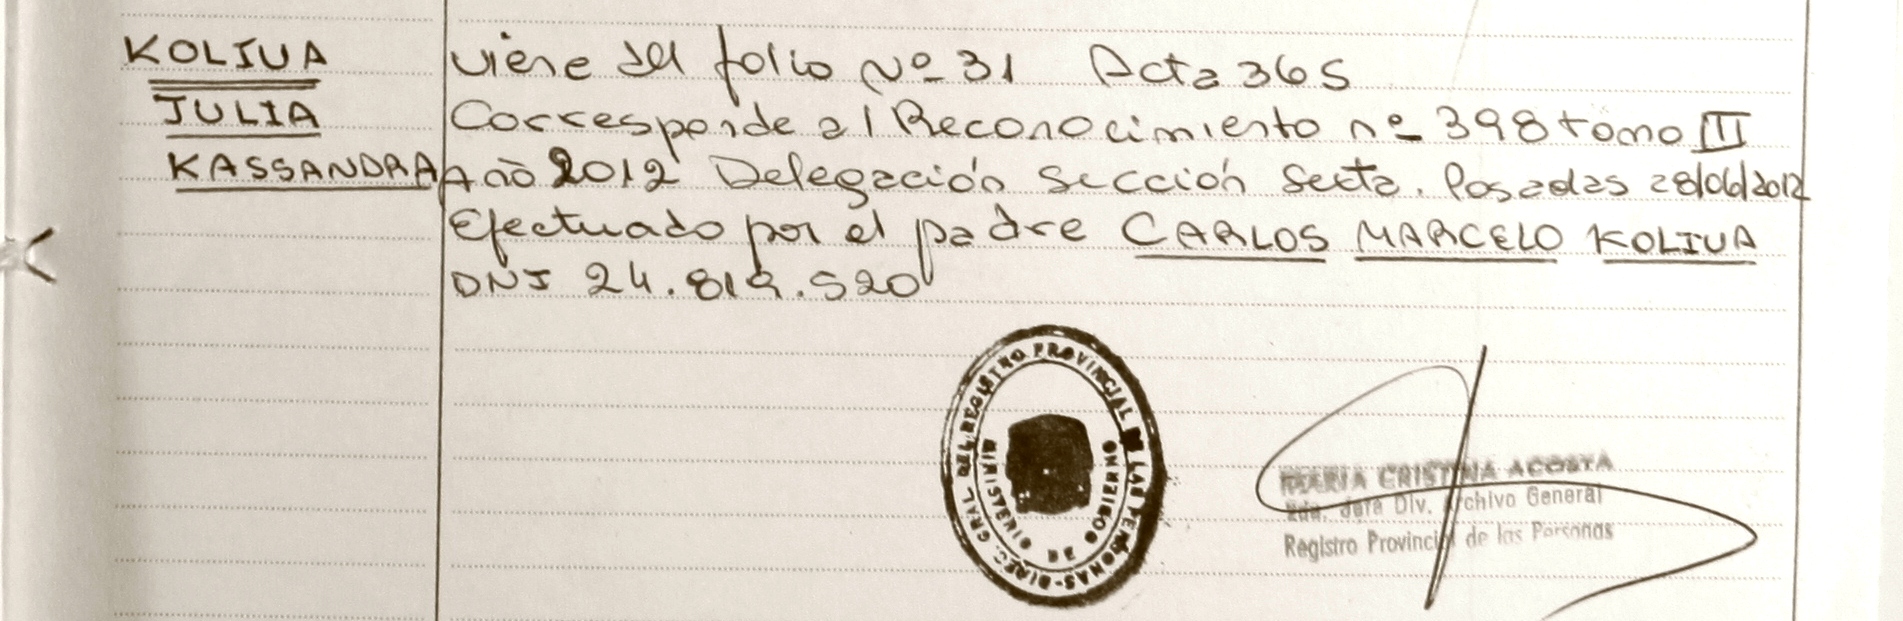 KOLIUA
JULIA
KASSANDRA
viene del folio Nº 31 Acta 365
Corresponde al Reconocimiento nº 398 tomo III
Año 2012 Delegación Sección Sexta. Posadas 28/06/2012
Efectuado por el padre CARLOS MARCELO KOLIUA
DNI 24.819.520
DIREC. GRAL. DEL REGISTRO PROVINCIAL DE LAS PERSONAS-
MINISTERIO DE GOBIERNO
MARIA CRISTINA ACOSTA
Jefa Div. Archivo General
Registro Provincial de las Personas